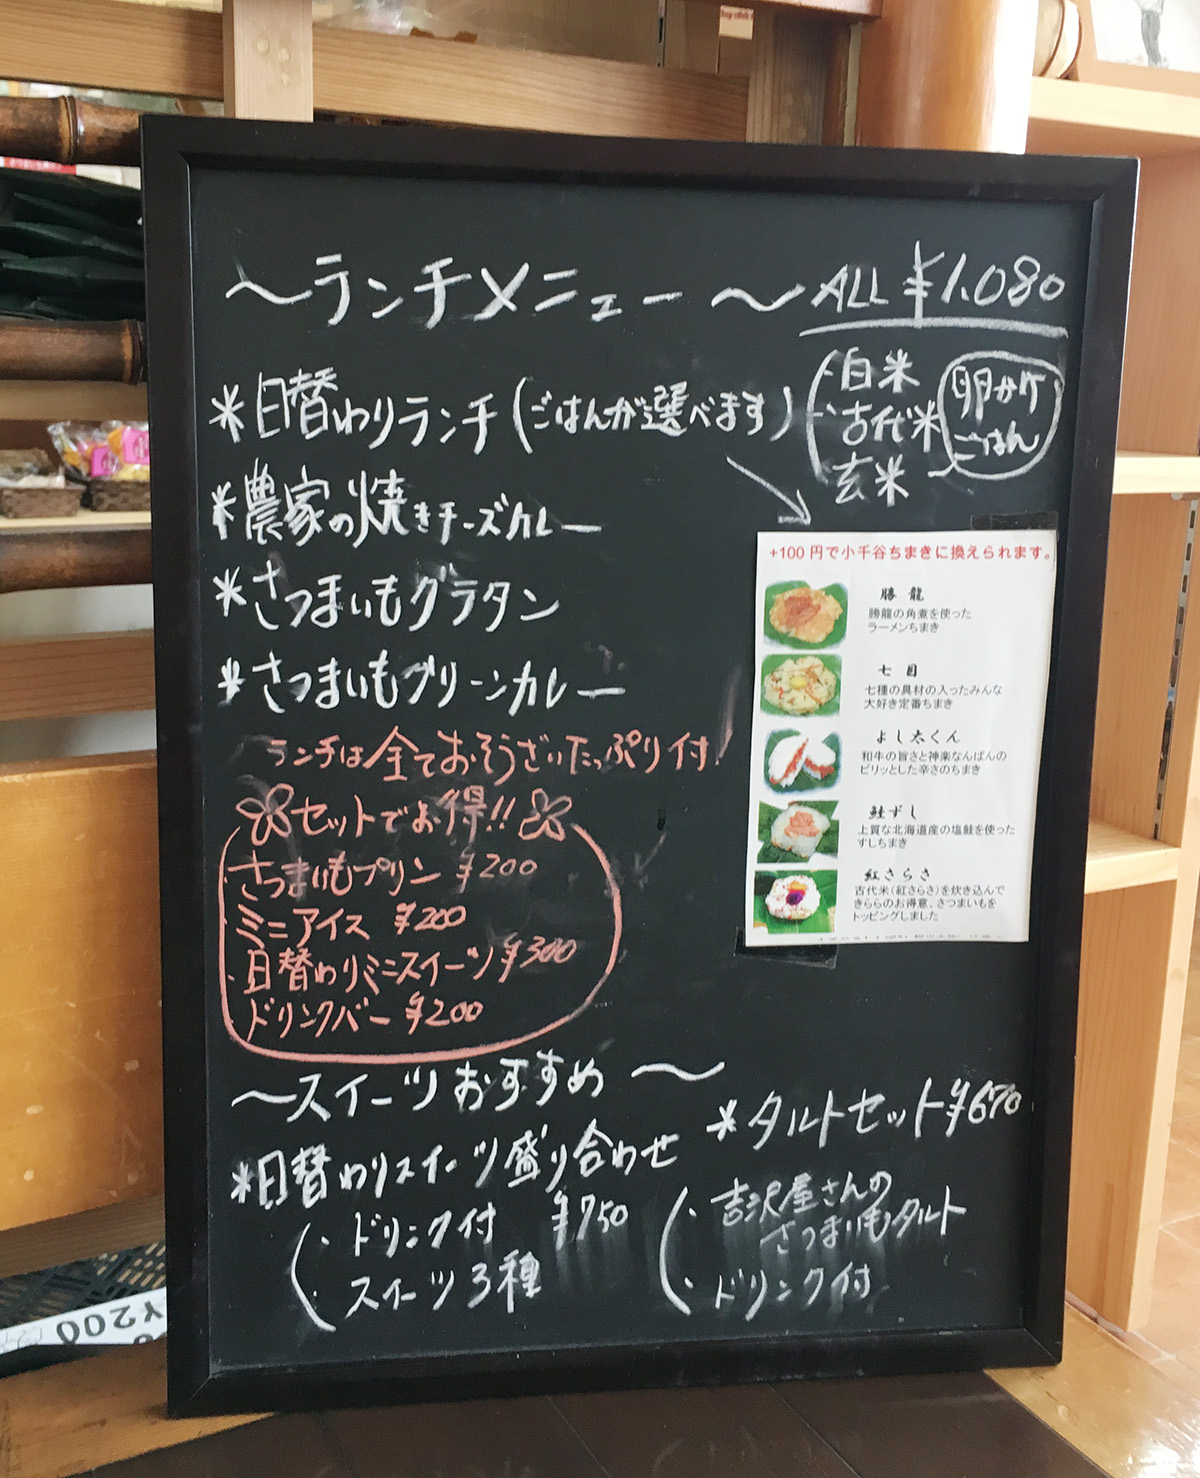 〜ランチメニュー〜 ALL ¥1,080
*日替わりランチ(ごはんが選べます)
・白米
・古代米
・玄米
卵かけ
ごはん
*農家の焼きチーズカレー
*さつまいもグラタン
*さつまいもグリーンカレー
ランチは全ておそうざいたっぷり付!
セットでお得!!
・さつまいもプリン ¥200
・ミニアイス ¥200
・日替わりミニスイーツ ¥300
・ドリンクバー ¥200
+100円で小千谷ちまきに換えられます。
勝龍
勝龍の角煮を使った
ラーメンちまき
七目
七種の具材の入ったみんな
大好き定番ちまき
よし太くん
和牛の旨さと神楽なんばんの
ピリッとした辛さのちまき
鮭ずし
上質な北海道産の塩鮭を使った
すしちまき
紅さらさ
古代米(紅さらさ)を炊き込んで
きららのお得意、さつまいもを
トッピングしました
〜スイーツおすすめ〜
*日替わりスイーツ盛り合わせ
¥750
・ドリンク付
・スイーツ3種
*タルトセット¥670
・吉沢屋さんの
さつまいもタルト
・ドリンク付
¥200